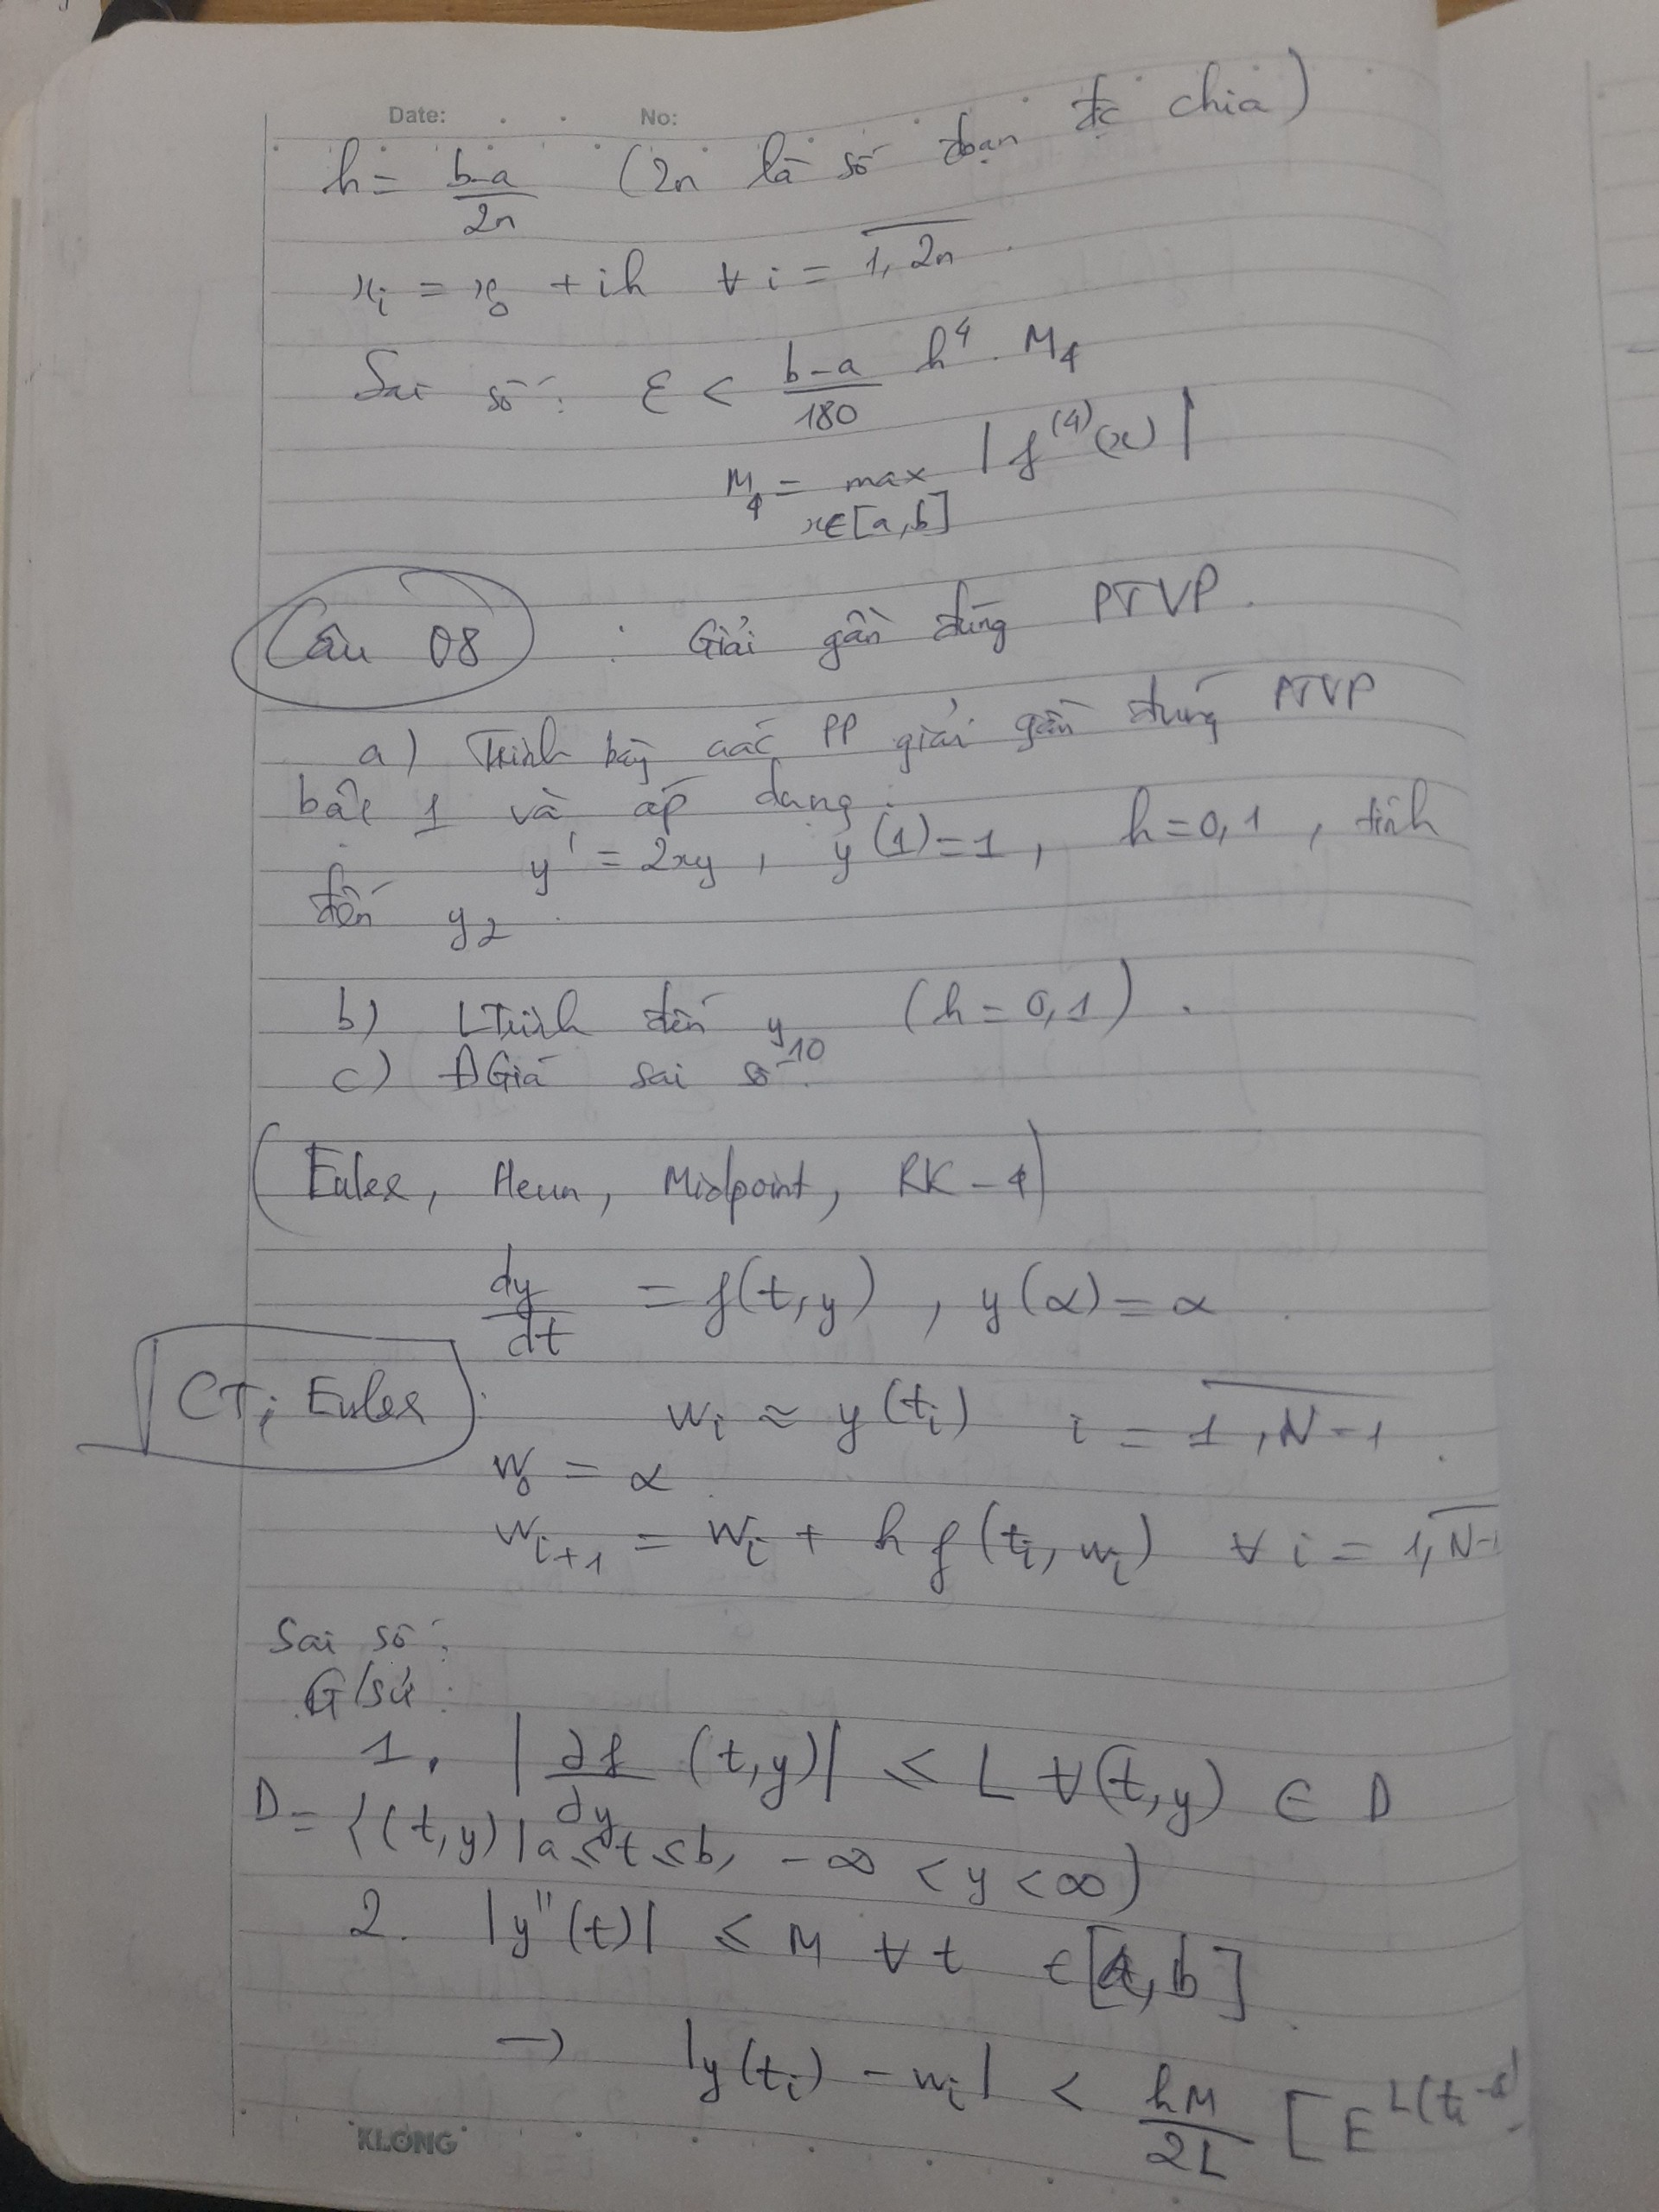 Date: No:
h = b-a / 2n (2n là số đoạn đc chia)
xᵢ = x₀ + ih ∀ i = 1, 2n
Sai số: ε < b-a / 180 h⁴ . M₄
M₄ = max |f⁽⁴⁾(x)|
x∈[a,b]
Câu 08 : Giải gần đúng PTVP.
a) Trình bày các PP giải gần đúng PTVP
bậc 1 và áp dụng:
y' = 2xy, y(1)=1, h=0,1, tính
đến y₂.
b) LTrình đến y₁₀ (h=0,1).
c) ĐGiá sai số.
(Euler, Heun, Midpoint, RK-4)
dy/dt = f(t,y), y(α)=α.
CT: Euler : wᵢ ≈ y(tᵢ) i = 1, N-1.
w₀ = α.
wᵢ₊₁ = wᵢ + h f(tᵢ, wᵢ) ∀ i = 1, N-1
Sai số:
G/sử:
1. |∂f/∂y (t,y)| ≤ L ∀(t,y) ∈ D
D = {(t,y) | a ≤ t ≤ b, -∞ < y < ∞}
2. |y''(t)| ≤ M ∀ t ∈ [a,b].
→ |y(tᵢ) - wᵢ| < hM/2L [E^L(tᵢ-a) -
KLONG